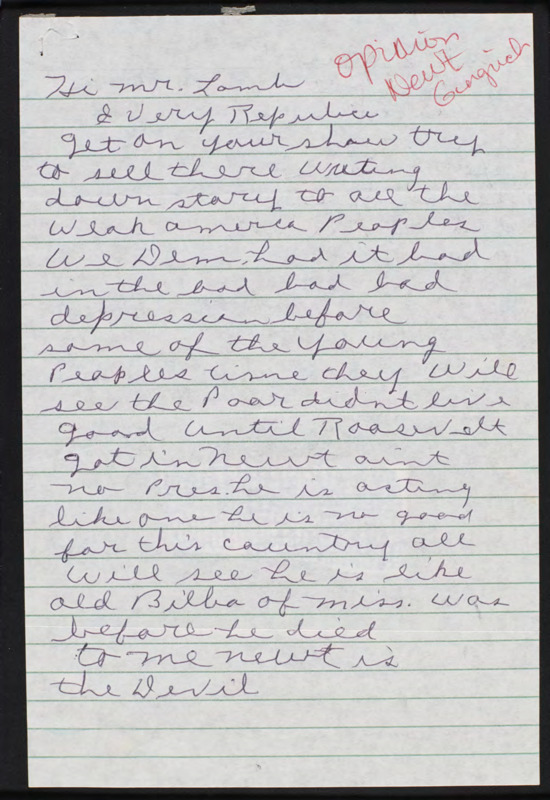 Opinion
Newt
Gingrich
Hi Mr. Lamb
Every Repubic
get on your show try
to sell there writing
down story to all the
weak america Peoples
We Dem. had it bad
in the bad bad bad
depression before
some of the young
Peoples time they will
see the Poor didnt live
good until Roosevelt
got in Newt aint
no Pres. he is acting
like one he is no good
for this country all
will see he is like
old Bilba of miss. was
before he died
to me newt is
the Devil